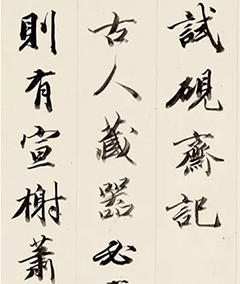 試硯齋記
古人藏器必
則有宣榭蕭